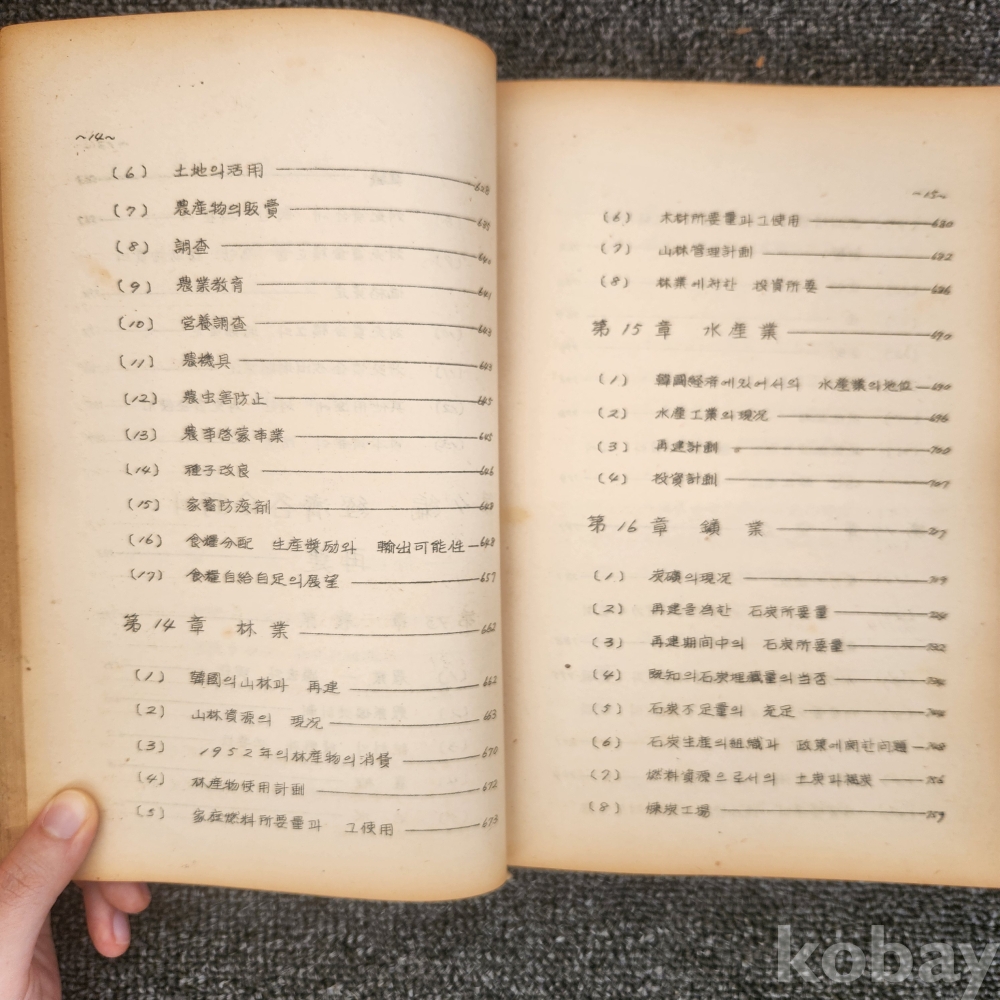 ~14~
(6) 土地의 活用
(7) 農産物의 販賣 635
(8) 調査 640
(9) 農業敎育 641
(10) 営養調査 643
(11) 農機具
(12) 農虫害防止 645
(13) 農事啓蒙事業 645
(14) 種子改良 646
(15) 家畜防疫剤 648
(16) 食糧分配 生産奬励와 輸出可能性 648
(17) 食糧自給自足의 展望 657
第14章 林業 662
(1) 韓國의 山林과 再建 662
(2) 山林資源의 現況 663
(3) 1952年의 林産物의 消費 670
(4) 林産物使用計劃 672
(5) 家庭燃料所要量과 그 使用 673
~15~
(6) 木材所要量과 그 使用 680
(7) 山林管理計劃 682
(8) 林業에 対한 投資所要 686
第15章 水産業 690
(1) 韓國経済에 있어서의 水産業의 地位 690
(2) 水産工業의 現况 696
(3) 再建計劃 700
(4) 投資計劃 707
第16章 鑛業 717
(1) 炭礦의 現况 719
(2) 再建을 為한 石炭所要量
(3) 再建期間中의 石炭所要量 732
(4) 既知의 石炭埋藏量의 当否
(5) 石炭不足量의 充足
(6) 石炭生産의 組織과 政策에 関한 问題 748
(7) 燃料資源으로서의 土炭과 褐炭 756
(8) 煉炭工場 759
kobay